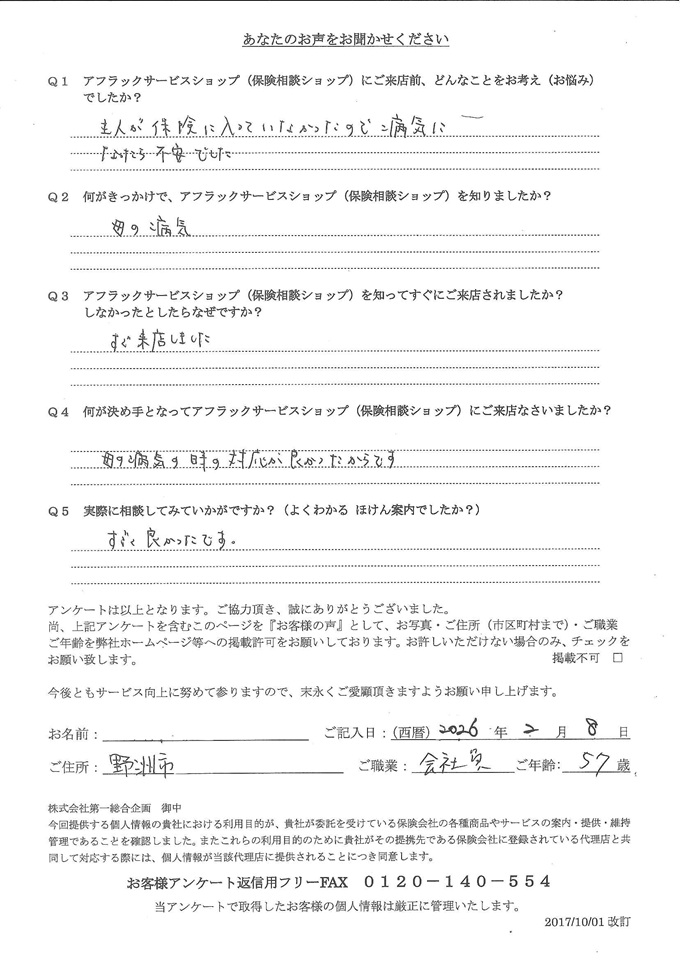 あなたのお声をお聞かせください
Q1 アフラックサービスショップ（保険相談ショップ）にご来店前、どんなことをお考え（お悩み）
でしたか？
主人が保険に入っていなかったので病気に
なったら不安でした
Q2 何がきっかけで、アフラックサービスショップ（保険相談ショップ）を知りましたか？
母の病気
Q3 アフラックサービスショップ（保険相談ショップ）を知ってすぐにご来店されましたか？
しなかったとしたらなぜですか？
すぐ来店しました
Q4 何が決め手となってアフラックサービスショップ（保険相談ショップ）にご来店なさいましたか？
母の病気の時の対応が良かったからです
Q5 実際に相談してみていかがですか？（よくわかる ほけん案内でしたか？）
すごく良かったです。
アンケートは以上となります。ご協力頂き、誠にありがとうございました。
尚、上記アンケートを含むこのページを『お客様の声』として、お写真・ご住所（市区町村まで）・ご職業
ご年齢を弊社ホームページ等への掲載許可をお願いしております。お許しいただけない場合のみ、チェックを
お願い致します。 掲載不可 □
今後ともサービス向上に努めて参りますので、末永くご愛顧頂きますようお願い申し上げます。
お名前： ご記入日：（西暦）2026 年 2 月 8 日
ご住所：野洲市 ご職業：会社員 ご年齢：57歳
株式会社第一総合企画 御中
今回提供する個人情報の貴社における利用目的が、貴社が委託を受けている保険会社の各種商品やサービスの案内・提供・維持
管理であることを確認しました。またこれらの利用目的のために貴社がその提携先である保険会社に登録されている代理店と共
同して対応する際には、個人情報が当該代理店に提供されることにつき同意します。
お客様アンケート返信用フリーFAX 0120－140－554
当アンケートで取得したお客様の個人情報は厳正に管理いたします。
2017/10/01 改訂